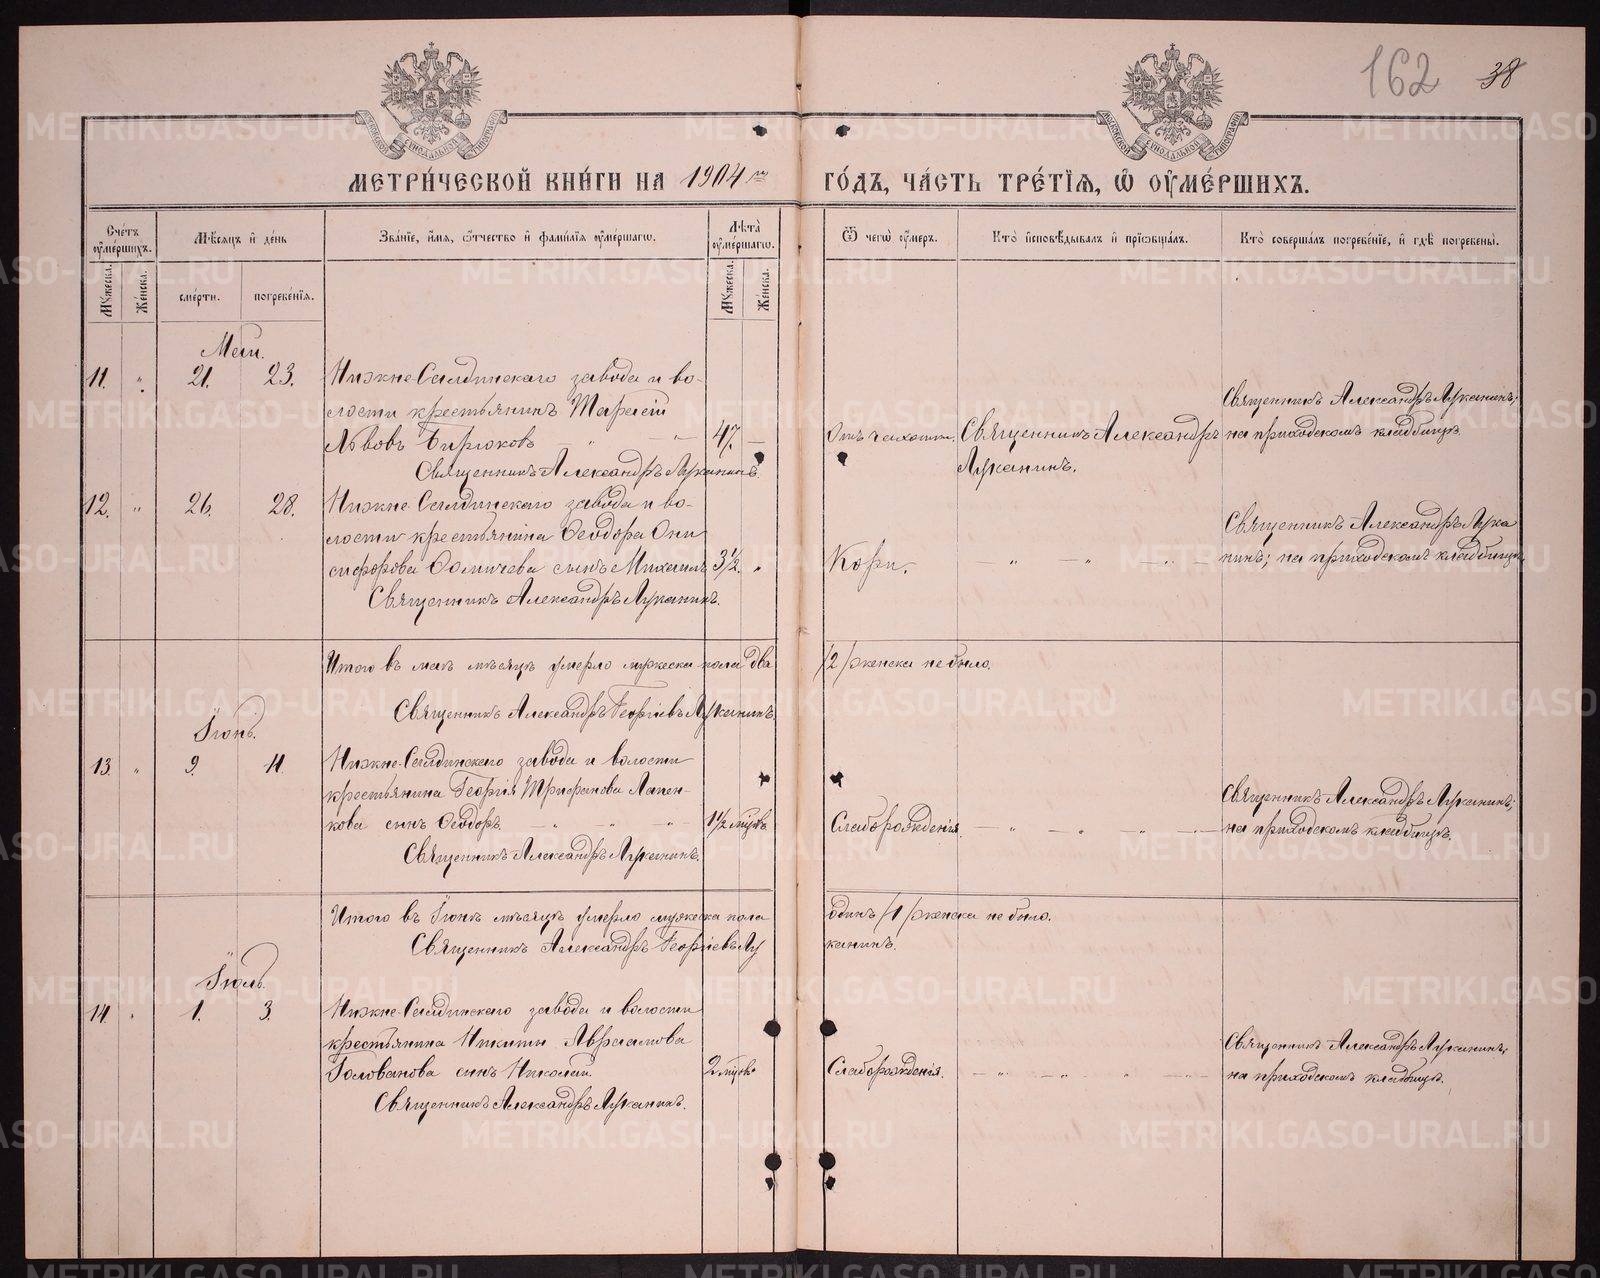 162 38
МЕТРИ́ЧЕСКОЙ КНИ́ГИ НА 1904 й ГО́ДЪ, ЧА́СТЬ ТРЕ́ТІѦ, Ѿ ОУ҆МЕ́РШИХЪ.
Сче́тъ оу҆ме́ршихъ.
Мѣ́сяцъ и҆ де́нь
Зва́ніе, и҆́мя, ѻ҆́тчество и҆ фами́лія оу҆ме́ршагѡ.
Лѣ́та оу҆ме́ршагѡ.
Ѿ чегѡ̀ оу҆́меръ.
Кто̀ и҆сповѣ́дывалъ и҆ прїѻбща́лъ.
Кто̀ соверша́лъ погребе́ніе, и҆ гдѣ̀ погребены̀.
Мꙋ́жеска.
Же́нска.
сме́рти.
погребе́нія.
Мꙋ́жеска.
Же́нска.
Май.
11. " 21. 23. Нижне-Салдинскаго завода и во-
лости крестьянинъ Тарасій
Львовъ Бирюковъ — " — " — 47. —
Священникъ Александръ Луканинъ.
Отъ чахотки.
Священникъ Александръ
Луканинъ.
Священникъ Александръ Луканинъ;
на приходскомъ кладбищѣ.
12. " 26. 28. Нижне-Салдинскаго завода и во-
лости крестьянина Ѳеодора Они
сифорова Ѳомичева сынъ Михаилъ 3½. "
Священникъ Александръ Луканинъ.
Кори. — " — " — " —
Священникъ Александръ Лука
нинъ; на приходскомъ кладбищѣ.
Итого въ маѣ мѣсяцѣ умерло мужеска пола два /2/ женска не было.
Священникъ Александръ Георгіевъ Луканинъ.
Іюнь.
13. " 9. 11. Нижне-Салдинскаго завода и волости
крестьянина Георгія Трифанова Лапен-
кова сынъ Ѳеодоръ. — " — " — " — 1½ мѣсяцъ
Священникъ Александръ Луканинъ.
Слаборожденія. — " — " — " —
Священникъ Александръ Луканинъ;
на приходскомъ кладбищѣ.
Итого въ Іюнѣ мѣсяцѣ умерло мужеска пола одинъ /1/ женска не было.
Священникъ Александръ Георгіевъ Лу
канинъ.
Іюль.
14. " 1. 3. Нижне-Салдинскаго завода и волости
крестьянина Никиты Авраамова
Голованова сынъ Николай. 2 мѣсяц.
Священникъ Александръ Луканинъ.
Слаборожденія. — " — " — " —
Священникъ Александръ Луканинъ;
на приходскомъ кладбищѣ.
METRIKI.GASO-URAL.RU